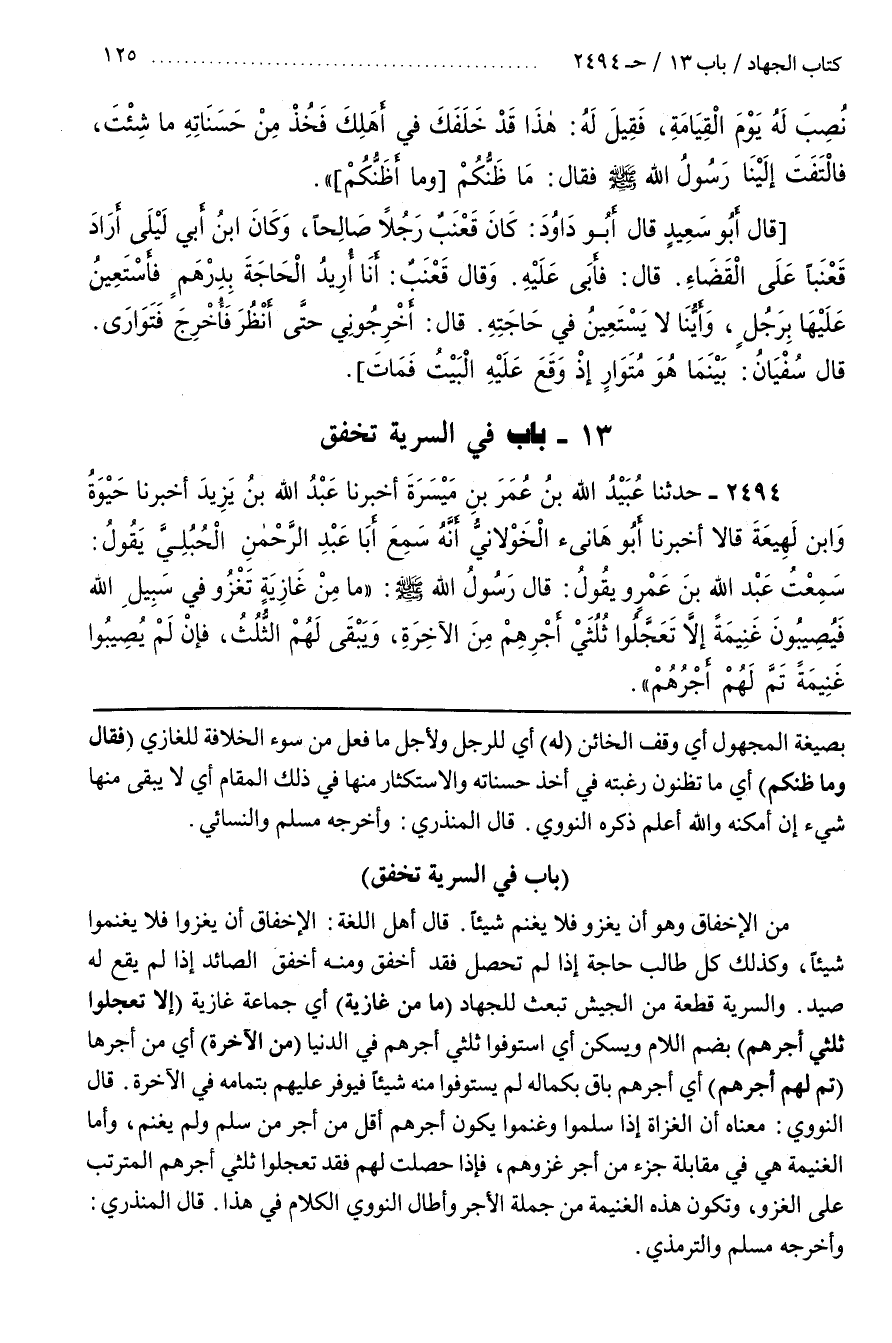 كتاب الجهاد / باب ١٣ / حـ ٢٤٩٤ ........................................... ١٢٥
نُصِبَ لَهُ يَوْمَ الْقِيَامَةِ، فَقِيلَ لَهُ: هٰذَا قَدْ خَلَفَكَ في أَهْلِكَ فَخُذْ مِنْ حَسَنَاتِهِ ما شِئْتَ،
فالْتَفَتَ إلَيْنَا رَسُولُ الله ﷺ فقال: مَا ظَنُّكُمْ [وما أَظَنُّكُمْ]».
[قال أَبُو سَعِيدٍ قال أَبُـو دَاوُدَ: كَانَ قَعْنَبٌ رَجُلاً صَالِحاً، وَكَانَ ابنُ أَبي لَيْلَى أَرَادَ
قَعْنَباً عَلَى الْقَضَاءِ. قال: فأَبَى عَلَيْهِ. وَقال قَعْنَبٌ: أَنَا أُرِيدُ الْحَاجَةَ بِدِرْهَمٍ فأَسْتَعِينُ
عَلَيْهَا بِرَجُلٍ، وَأَيُّنَا لا يَسْتَعِينُ في حَاجَتِهِ. قال: أَخْرِجُونِي حتَّى أَنْظُرَ فَأُخْرِجَ فَتَوَارَى.
قال سُفْيَانُ: بَيْنَمَا هُوَ مُتَوَارٍ إذْ وَقَعَ عَلَيْهِ الْبَيْتُ فَمَاتَ].
١٣ - باب في السرية تخفق
٢٤٩٤ - حدثنا عُبَيْدُ الله بنُ عُمَرَ بنِ مَيْسَرَةَ أخبرنا عَبْدُ الله بنُ يَزِيدَ أخبرنا حَيْوَةُ
وَابن لَهِيعَةَ قالا أخبرنا أَبُو هَانىء الْخَوْلانيُّ أَنَّهُ سَمِعَ أَبَا عَبْدِ الرَّحْمٰنِ الْحُبُلِـيَّ يَقُولُ:
سَمِعْتُ عَبْد الله بنَ عَمْرٍو يقُولُ: قال رَسُولُ الله ﷺ: «ما مِنْ غَازِيَةٍ تَغْزُو في سَبِيلِ الله
فَيُصِيبُونَ غَنِيمَةً إلَّا تَعَجَّلُوا ثُلُثَيْ أَجْرِهِمْ مِنَ الآخِرَةِ، وَيَبْقَى لَهُمْ الثُّلُثُ، فإنْ لَمْ يُصِيبُوا
غَنِيمَةً تَمَّ لَهُمْ أَجْرُهُمْ».
بصيغة المجهول أي وقف الخائن (له) أي للرجل ولأجل ما فعل من سوء الخلافة للغازي (فقال
وما ظنكم) أي ما تظنون رغبته في أخذ حسناته والاستكثار منها في ذلك المقام أي لا يبقى منها
شيء إن أمكنه والله أعلم ذكره النووي. قال المنذري: وأخرجه مسلم والنسائي.
(باب في السرية تخفق)
من الإخفاق وهو أن يغزو فلا يغنم شيئاً. قال أهل اللغة: الإخفاق أن يغزوا فلا يغنموا
شيئاً، وكذلك كل طالب حاجة إذا لم تحصل فقد أخفق ومنـه أخفق الصائد إذا لم يقع له
صيد. والسرية قطعة من الجيش تبعث للجهاد (ما من غازية) أي جماعة غازية (إلا تعجلوا
ثلثي أجرهم) بضم اللام ويسكن أي استوفوا ثلثي أجرهم في الدنيا (من الآخرة) أي من أجرها
(تم لهم أجرهم) أي أجرهم باق بكماله لم يستوفوا منه شيئاً فيوفر عليهم بتمامه في الآخرة. قال
النووي: معناه أن الغزاة إذا سلموا وغنموا يكون أجرهم أقل من أجر من سلم ولم يغنم، وأما
الغنيمة هي في مقابلة جزء من أجر غزوهم، فإذا حصلت لهم فقد تعجلوا ثلثي أجرهم المترتب
على الغزو، وتكون هذه الغنيمة من جملة الأجر وأطال النووي الكلام في هذا. قال المنذري:
وأخرجه مسلم والترمذي.